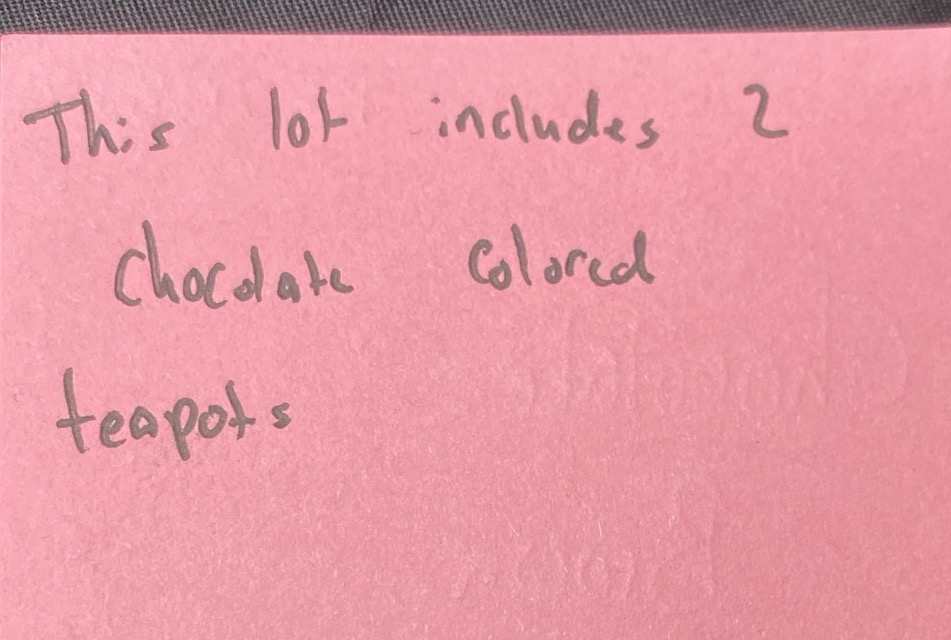 This lot includes 2
chocolate colored
teapots